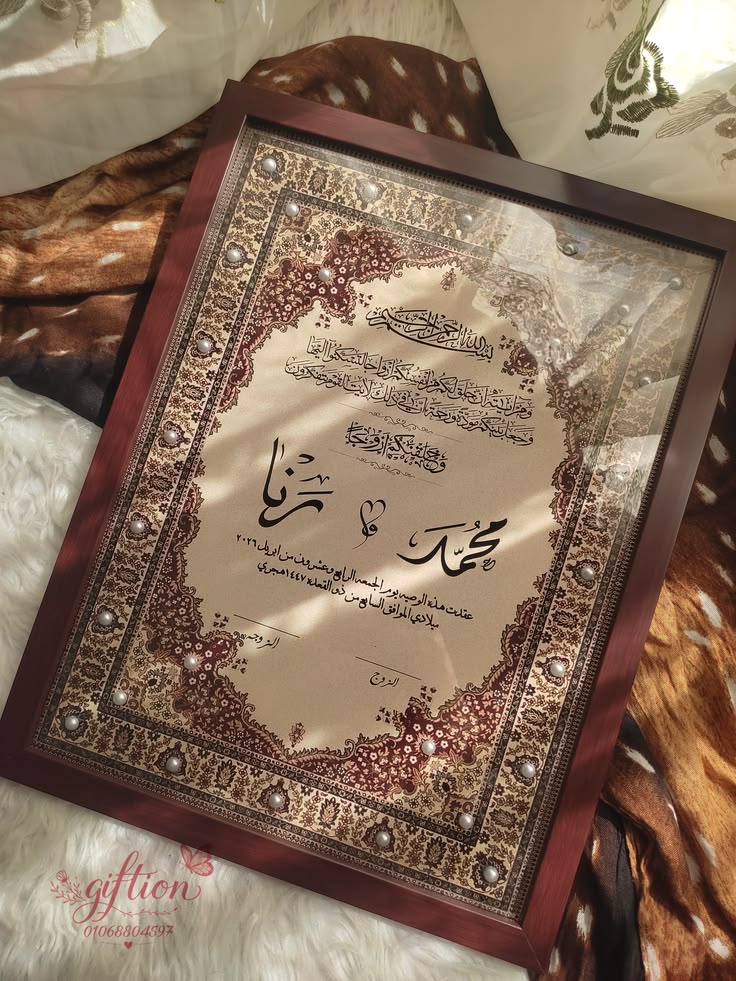 بسم الله الرحمن الرحيم
ومن آياته أن خلق لكم من أنفسكم أزواجا لتسكنوا إليها
وجعل بينكم مودة ورحمة إن في ذلك لآيات لقوم يتفكرون
وخلقناكم أزواجا
محمد و رنا
عقدت هذه الوصيه يوم الجمعه الرابع وعشرون من ابريل ٢٠٢٦
ميلادي الموافق السابع من ذي القعدة ١٤٤٧ هجري
الزوج
الزوجه
giftion
01068804597